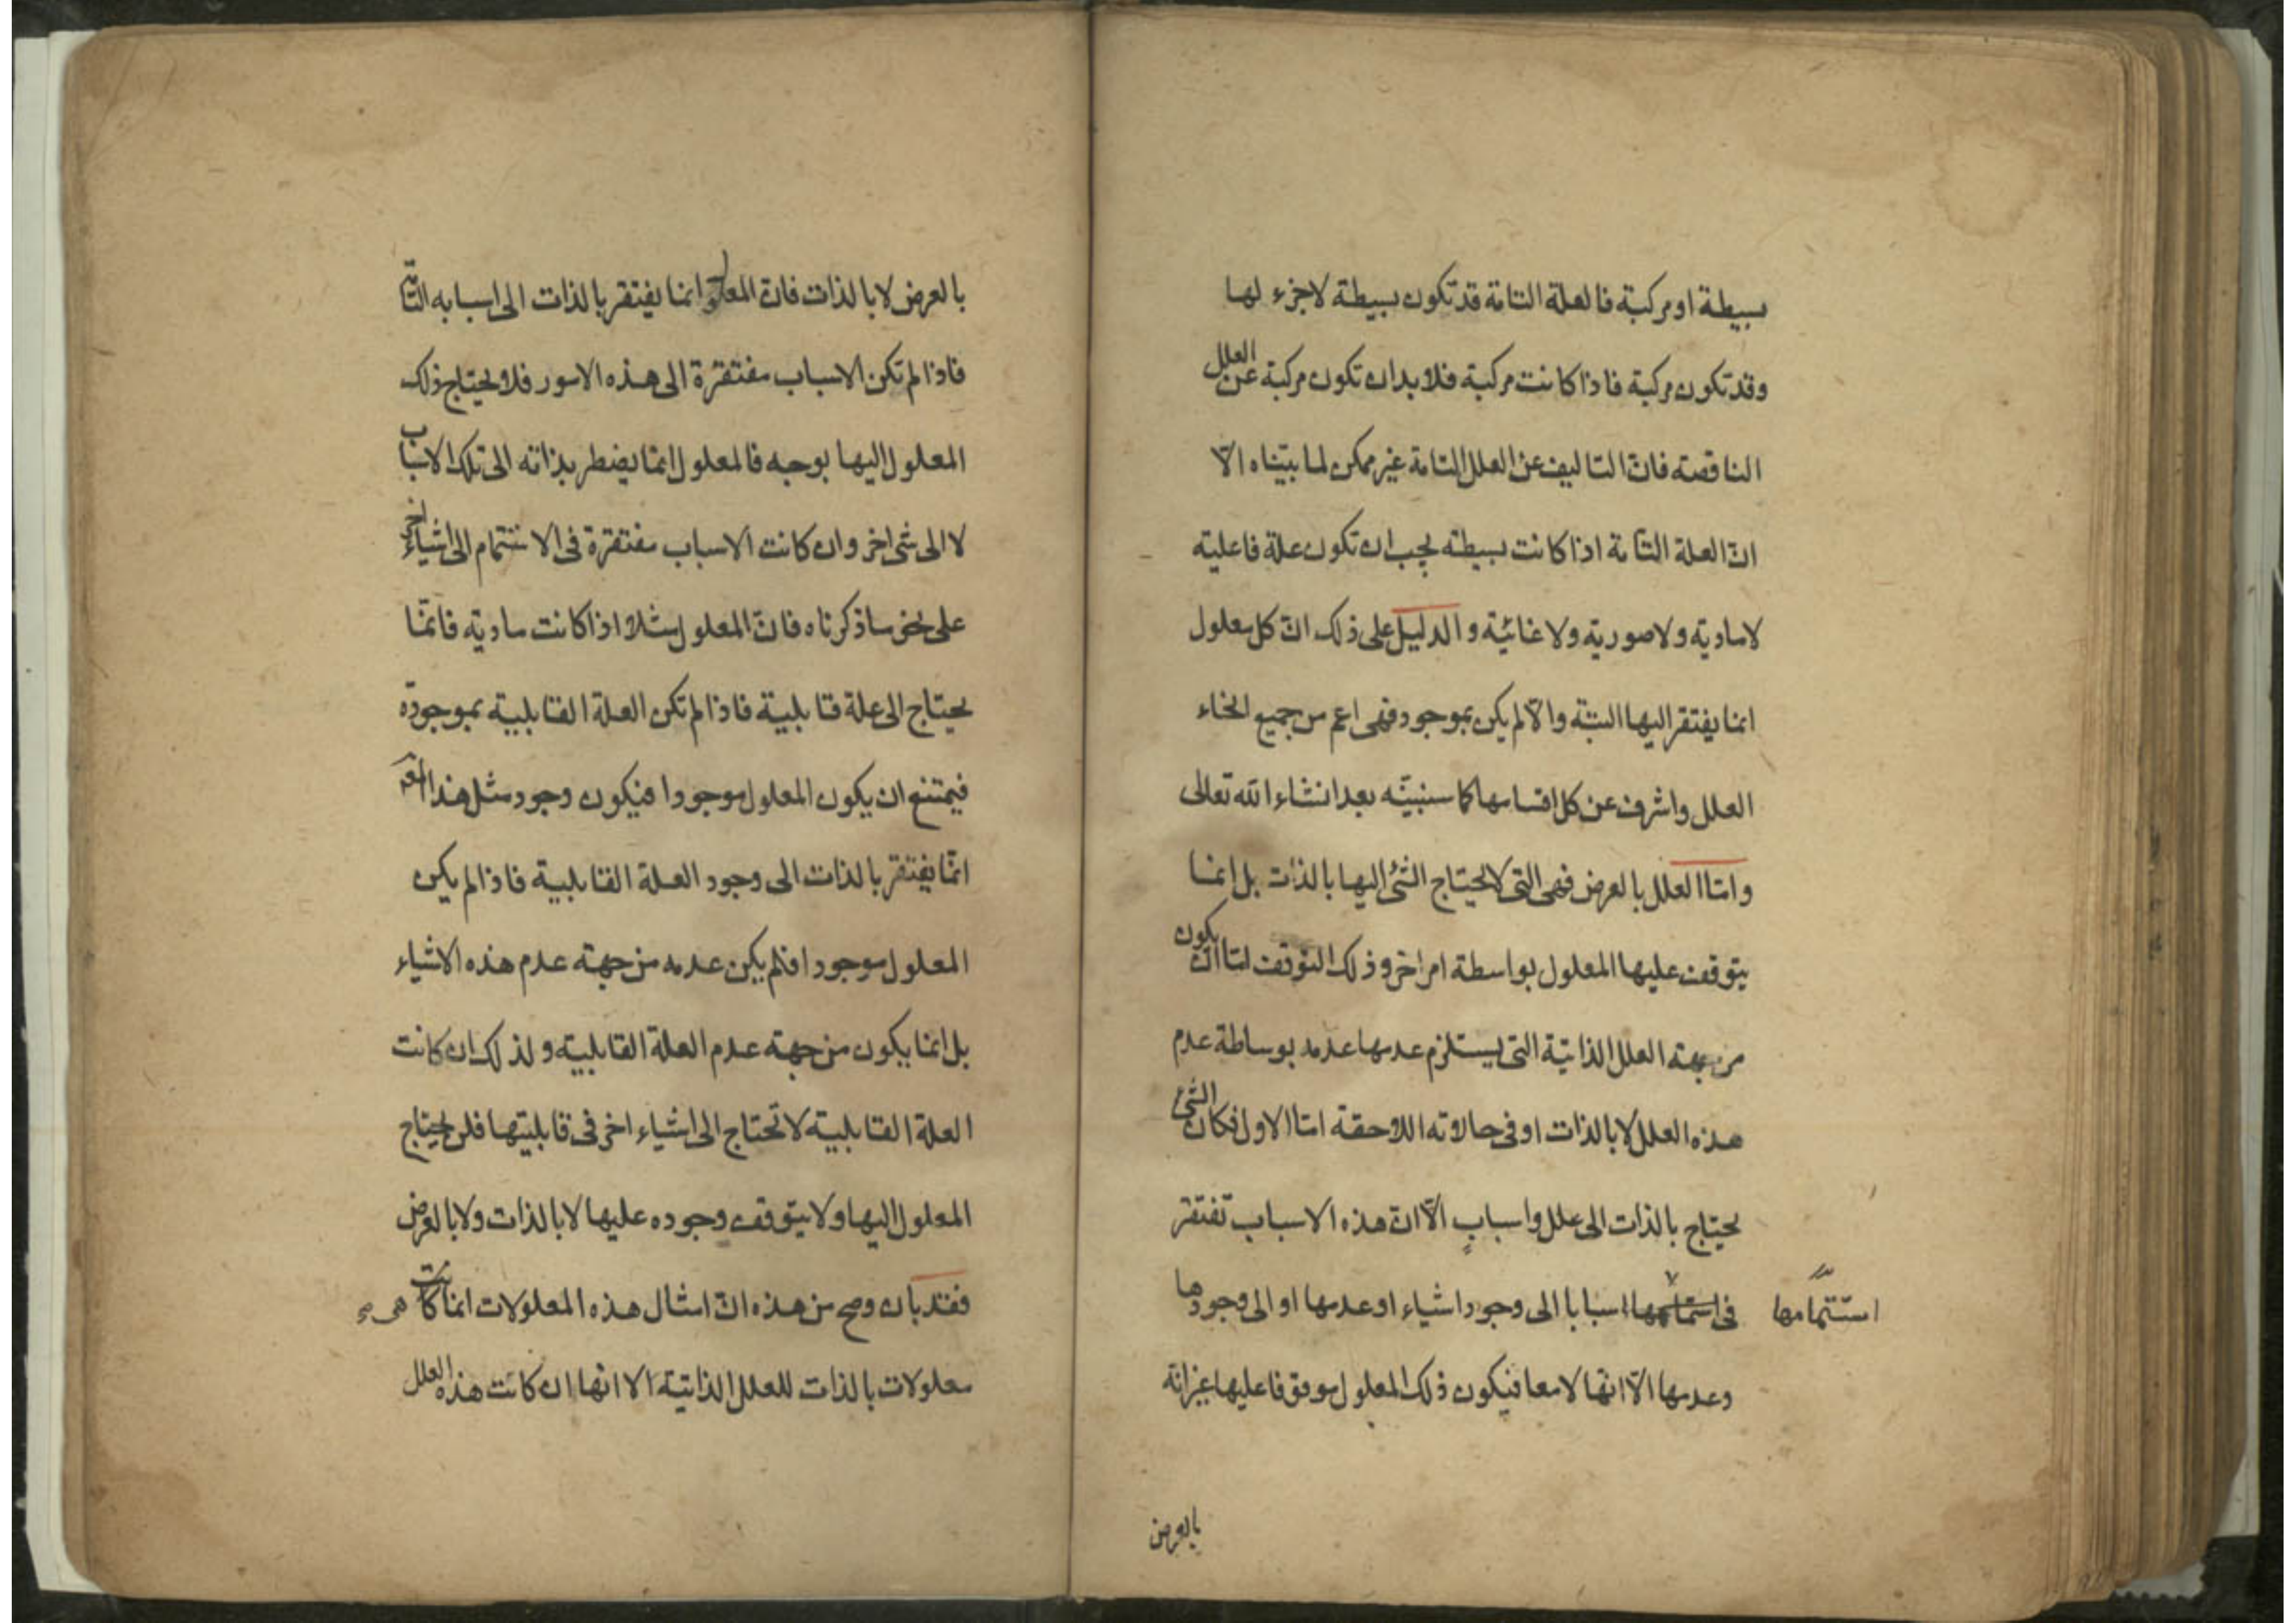 بسيطة او مركبة فالعلة التامة قد تكون بسيطة لاجزء لها
وقد تكون مركبة فاذا كانت مركبة فلابد ان تكون مركبة عن العلل
الناقصته فانّ التاليف عن العلل التامة غير ممكن لما بيّناه الّا
انّ العلة التامة اذا كانت بسيطه يجب ان تكون علة فاعليه
لا ماديه ولا صوريه ولا غائية والدليل على ذلك انّ كل معلول
انما يفتقر اليها البتة والّا لم يكن بموجود فهى اعم من جميع انحاء
العلل واشرف عن كل اقسامها كما سنبيّنه بعد انشاء الله تعالى
وامّا العلل بالعرض فهى التى لا يحتاج الشئ اليها بالذات بل انما
يتوقف عليها المعلول بواسطة امر اخر وذلك التوقف امّا ان يكون
من جهته العلل الذاتية التى يستلزم عدمها عدمه بوساطة عدم
هذه العلل لا بالذات او فى حالاته اللاحقة امّا الاول فكان الشئ
يحتاج بالذات الى علل واسبابٍ الّا انّ هذه الاسباب تفتقر
فى اسبابا الى وجود اشياء او عدمها او الى وجودها
استتمامها
وعدمها الّا انّها لا معا فيكون ذلك المعلول موقوفا عليها غير انّه
بالعرض
بالعرض لا بالذات فانّ المعلول انما يفتقر بالذات الى اسبابه التامّة
فاذا لم تكن الاسباب مفتقرة الى هذه الامور فلا يحتاج ذلك
المعلول اليها بوجه فالمعلول انما يضطر بذاته الى تلك الاسباب
لا الى شى اخر وان كانت الاسباب مفتقرة فى الاستتمام الى اشياء اخر
على نحو ما ذكرناه فانّ المعلول مثلا اذا كانت ماديّه فانّما
يحتاج الى علة قابلية فاذا لم تكن العلة القابلية بموجودة
فيمتنع ان يكون المعلول موجودا فيكون وجود مثل هذا المعـ
انّما يفتقر بالذات الى وجود العلة القابلية فاذا لم يكن
المعلول موجودا فلم يكن عدمه من جهته عدم هذه الاشياء
بل انما يكون من جهته عدم العلة القابليته ولذلك ان كانت
العلة القابلية لا تحتاج الى اشياء اخر فى قابليتها فلن يحتاج
المعلول اليها ولا يتوقف وجوده عليها لا بالذات ولا بالعرض
فقد بان وصح من هذه انّ امثال هذه المعلولات انما كانت هى صح
معلولات بالذات للعلل الذاتية الا انها ان كانت هذه العلل